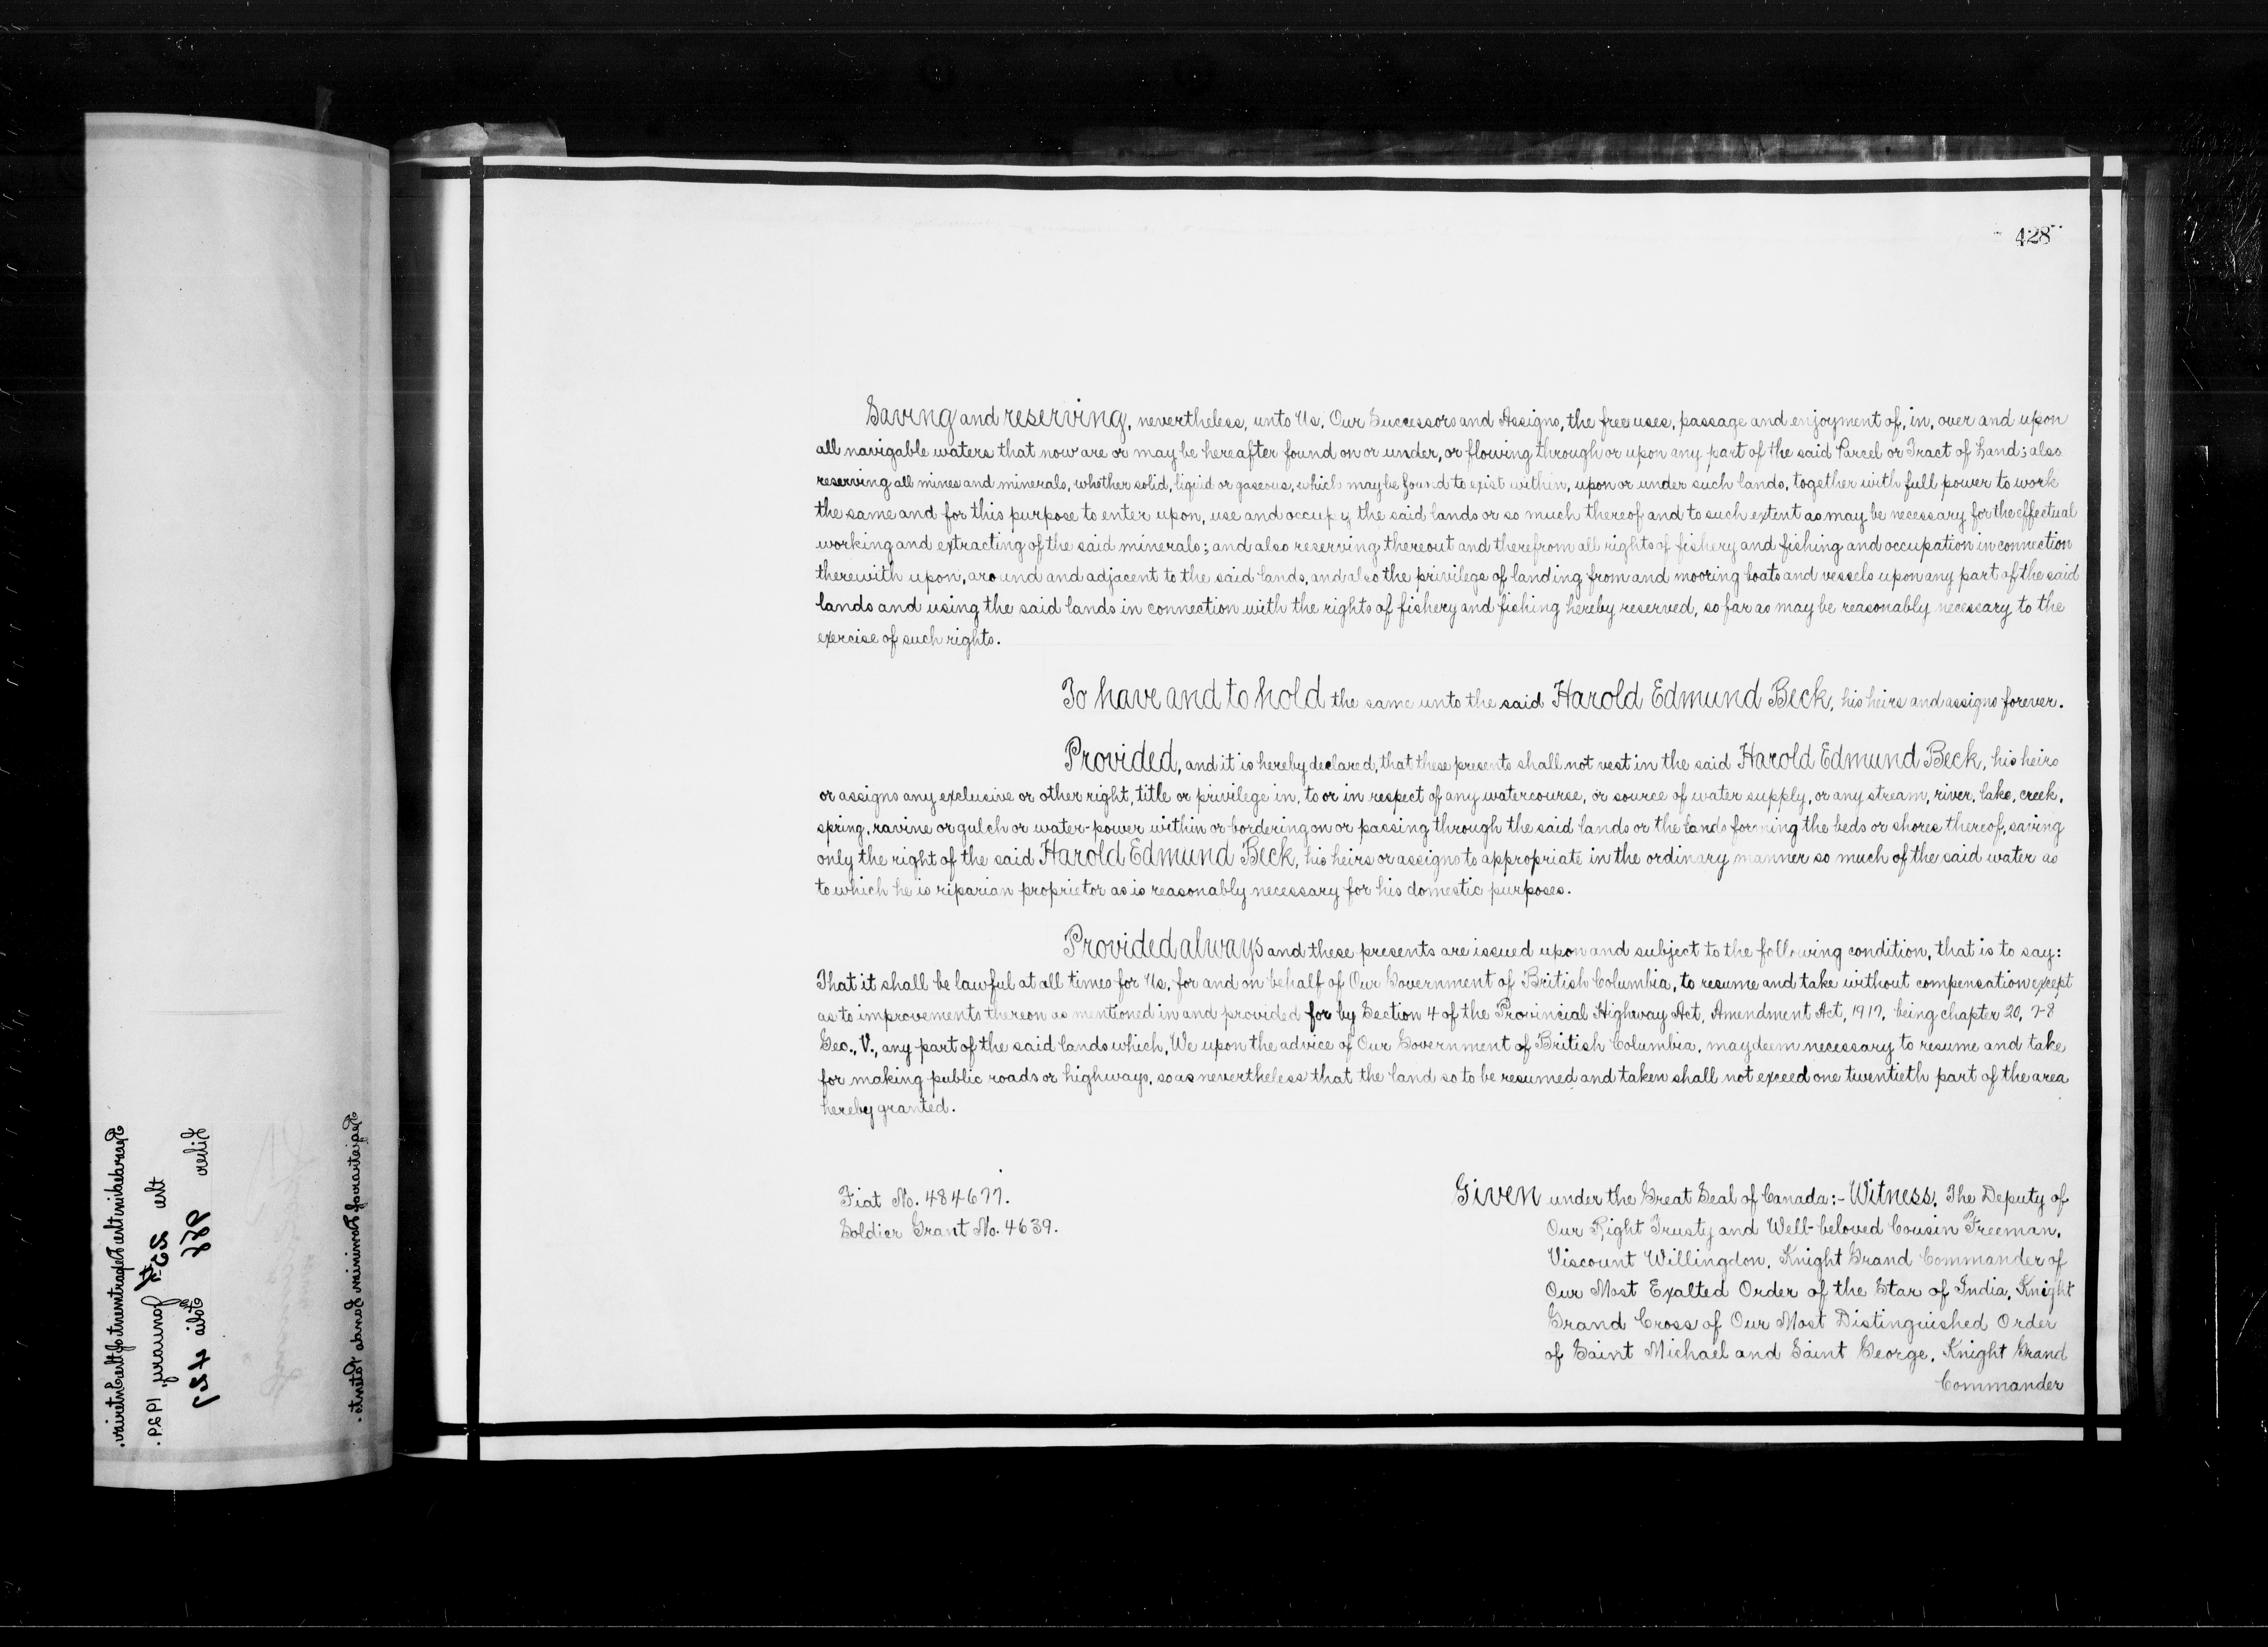 428
Saving and reserving, nevertheless, unto Us, Our Successors and Assigns, the free uses, passage and enjoyment of, in, over and upon
all navigable waters that now are or may be hereafter found on or under, or flowing through or upon any part of the said Parcel or Tract of Land; also
reserving all mines and minerals, whether solid, liquid or gaseous, which may be found to exist within, upon or under such lands, together with full power to work
the same and for this purpose to enter upon, use and occupy the said lands or so much thereof and to such extent as may be necessary for the effectual
working and extracting of the said minerals; and also reserving thereout and therefrom all rights of fishery and fishing and occupation in connection
therewith upon, around and adjacent to the said lands, and also the privilege of landing from and mooring boats and vessels upon any part of the said
lands and using the said lands in connection with the rights of fishery and fishing hereby reserved, so far as may be reasonably necessary to the
exercise of such rights.
To have and to hold the same unto the said Harold Edmund Beck, his heirs and assigns forever.
Provided, and it is hereby declared, that these presents shall not vest in the said Harold Edmund Beck, his heirs
or assigns any exclusive or other right, title or privilege in, to or in respect of any watercourse, or source of water supply, or any stream, river, lake, creek,
spring, ravine or gulch or water-power within or bordering on or passing through the said lands or the lands forming the beds or shores thereof, saving
only the right of the said Harold Edmund Beck, his heirs or assigns to appropriate in the ordinary manner so much of the said water as
to which he is riparian proprietor as is reasonably necessary for his domestic purposes.
Provided always and these presents are issued upon and subject to the following condition, that is to say:
That it shall be lawful at all times for Us, for and on behalf of Our Government of British Columbia, to resume and take without compensation except
as to improvements thereon as mentioned in and provided for by Section 4 of the Provincial Highway Act, Amendment Act, 1917, being chapter 20, 7-8
Geo., V., any part of the said lands which, We upon the advice of Our Government of British Columbia, may deem necessary to resume and take
for making public roads or highways, so as nevertheless that the land so to be resumed and taken shall not exceed one twentieth part of the area
hereby granted.
Fiat No. 484677.
Soldier Grant No. 4639.
Given under the Great Seal of Canada:- Witness, The Deputy of
Our Right Trusty and Well-beloved Cousin Freeman,
Viscount Willingdon, Knight Grand Commander of
Our Most Exalted Order of the Star of India, Knight
Grand Cross of Our Most Distinguished Order
of Saint Michael and Saint George, Knight Grand
Commander
Recorded in the Department of the Interior,
the 25th January, 1929.
Liber 988 Folio 427
Registrar of Dominion Lands Patents.